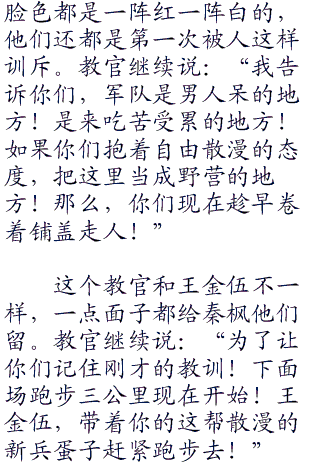 脸色都是一阵红一阵白的，
他们还都是第一次被人这样
训斥。教官继续说：“我告
诉你们，军队是男人呆的地
方！是来吃苦受累的地方！
如果你们抱着自由散漫的态
度，把这里当成野营的地
方！那么，你们现在趁早卷
着铺盖走人！”
这个教官和王金伍不一
样，一点面子都给秦枫他们
留。教官继续说：“为了让
你们记住刚才的教训！下面
场跑步三公里现在开始！王
金伍，带着你的这帮散漫的
新兵蛋子赶紧跑步去！”